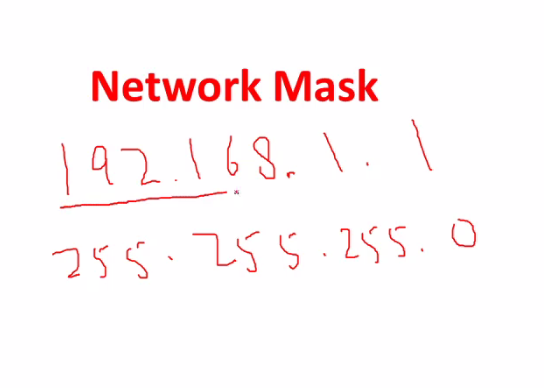 Network Mask
192.168.1.1
255.255.255.0